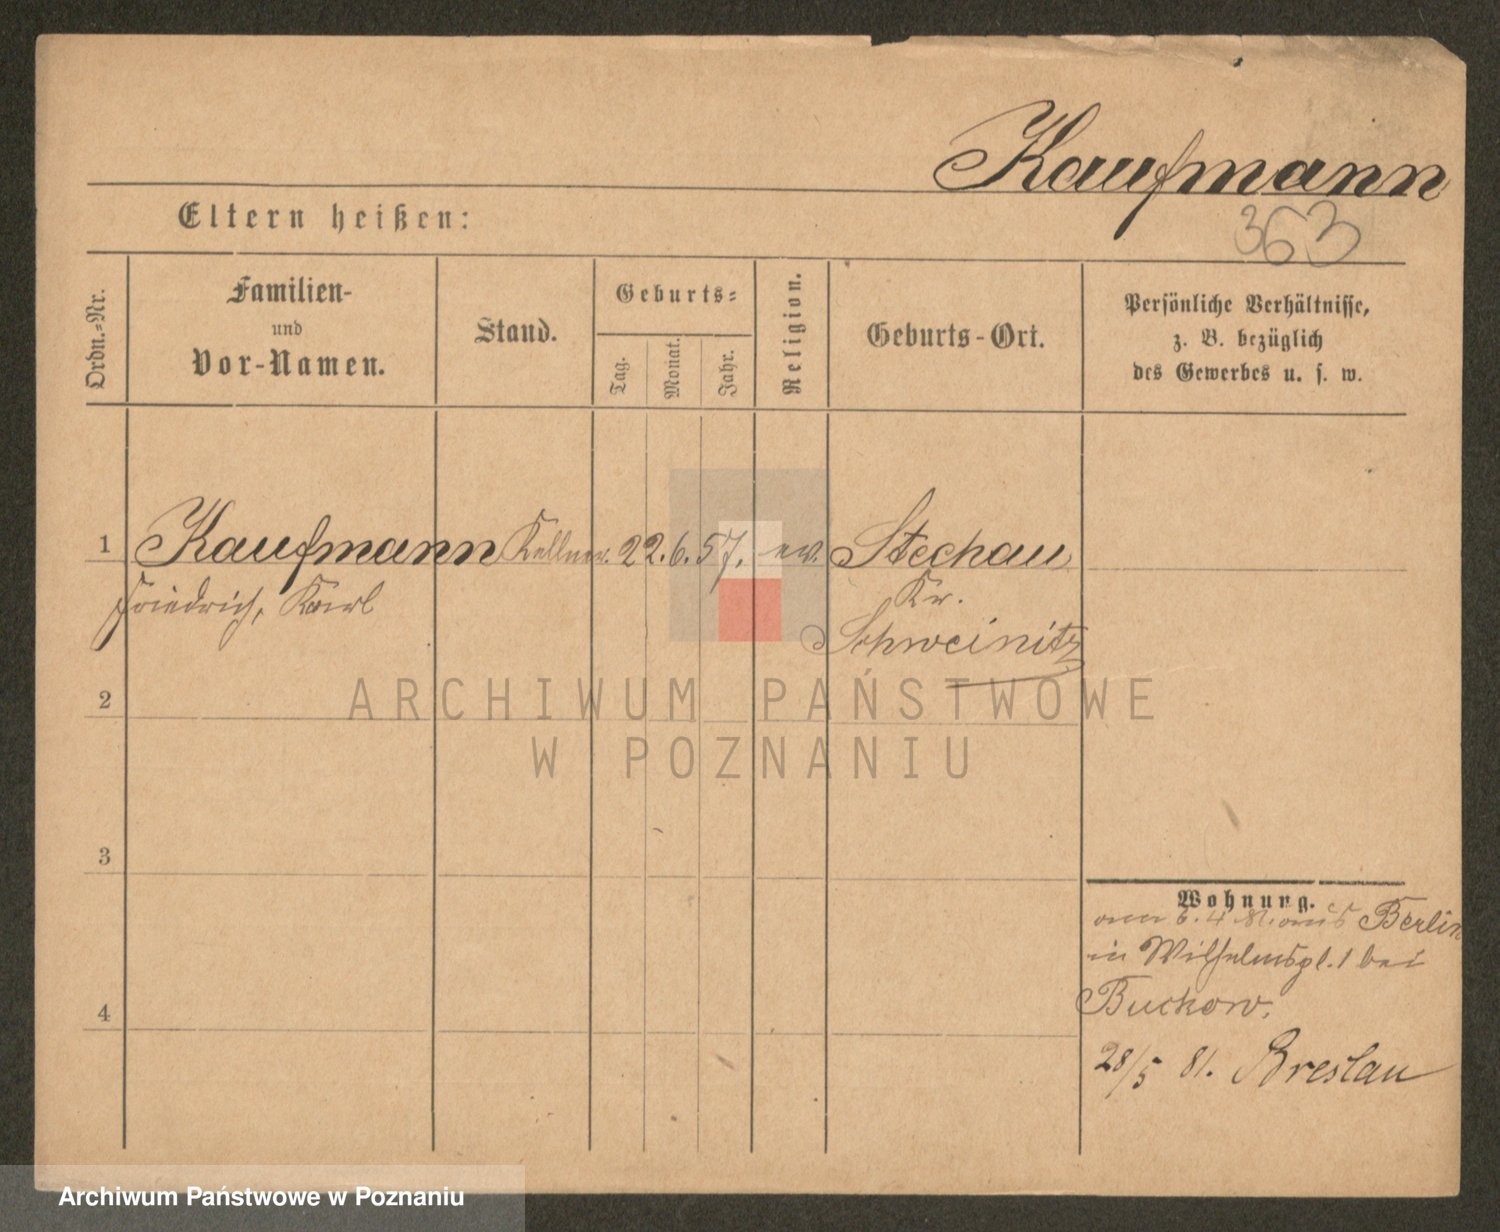 Kaufmann
363
Eltern heißen:
Ordn.-Nr.
Familien-
und
Vor-Namen.
Stand.
Geburts-
Tag.
Monat.
Jahr.
Religion.
Geburts-Ort.
Persönliche Verhältnisse,
z. B. bezüglich
des Gewerbes u. s. w.
1 Kaufmann Kellner. 22. 6. 57. ev. Stechau
Friedrich, Karl
Kr.
Schweinitz
2
ARCHIWUM PAŃSTWOWE
W POZNANIU
3
Wohnung.
6. 4 Berlin
in Wilhelmspl. 1 bei
4
Buckow.
28/5 81. Breslau
Archiwum Państwowe w Poznaniu